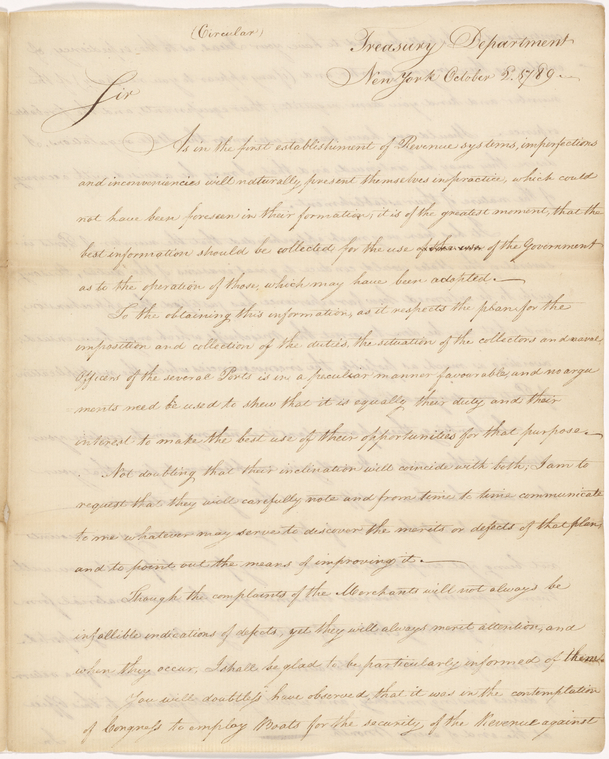 (Circular)
Treasury Department
New York October 2. 1789.
Sir
As in the first establishment of Revenue systems, imperfections
and inconveniencies will naturally present themselves in practice, which could
not have been foreseen in their formation; it is of the greatest moment, that the
best information should be collected for the use of the Government
as to the operation of those, which may have been adopted.
To the obtaining this information, as it respects the plan for the
imposition and collection of the duties, the situation of the collectors and naval
Officers of the several Ports is in a peculiar manner favourable, and no argu
ments need be used to shew that it is equally their duty and their
interest to make the best use of their opportunities for that purpose.
Not doubting that their inclination will coincide with both, I am to
request that they will carefully note and from time to time communicate
to me whatever may serve to discover the merits or defects of that plan,
and to point out the means of improving it.
Though the complaints of the Merchants will not always be
infallible indications of defects, yet they will always merit attention, and
when they occur, I shall be glad to be particularly informed of them.
You will doubtless have observed that it was in the contemplation
of Congress to employ Boats for the security of the Revenue against